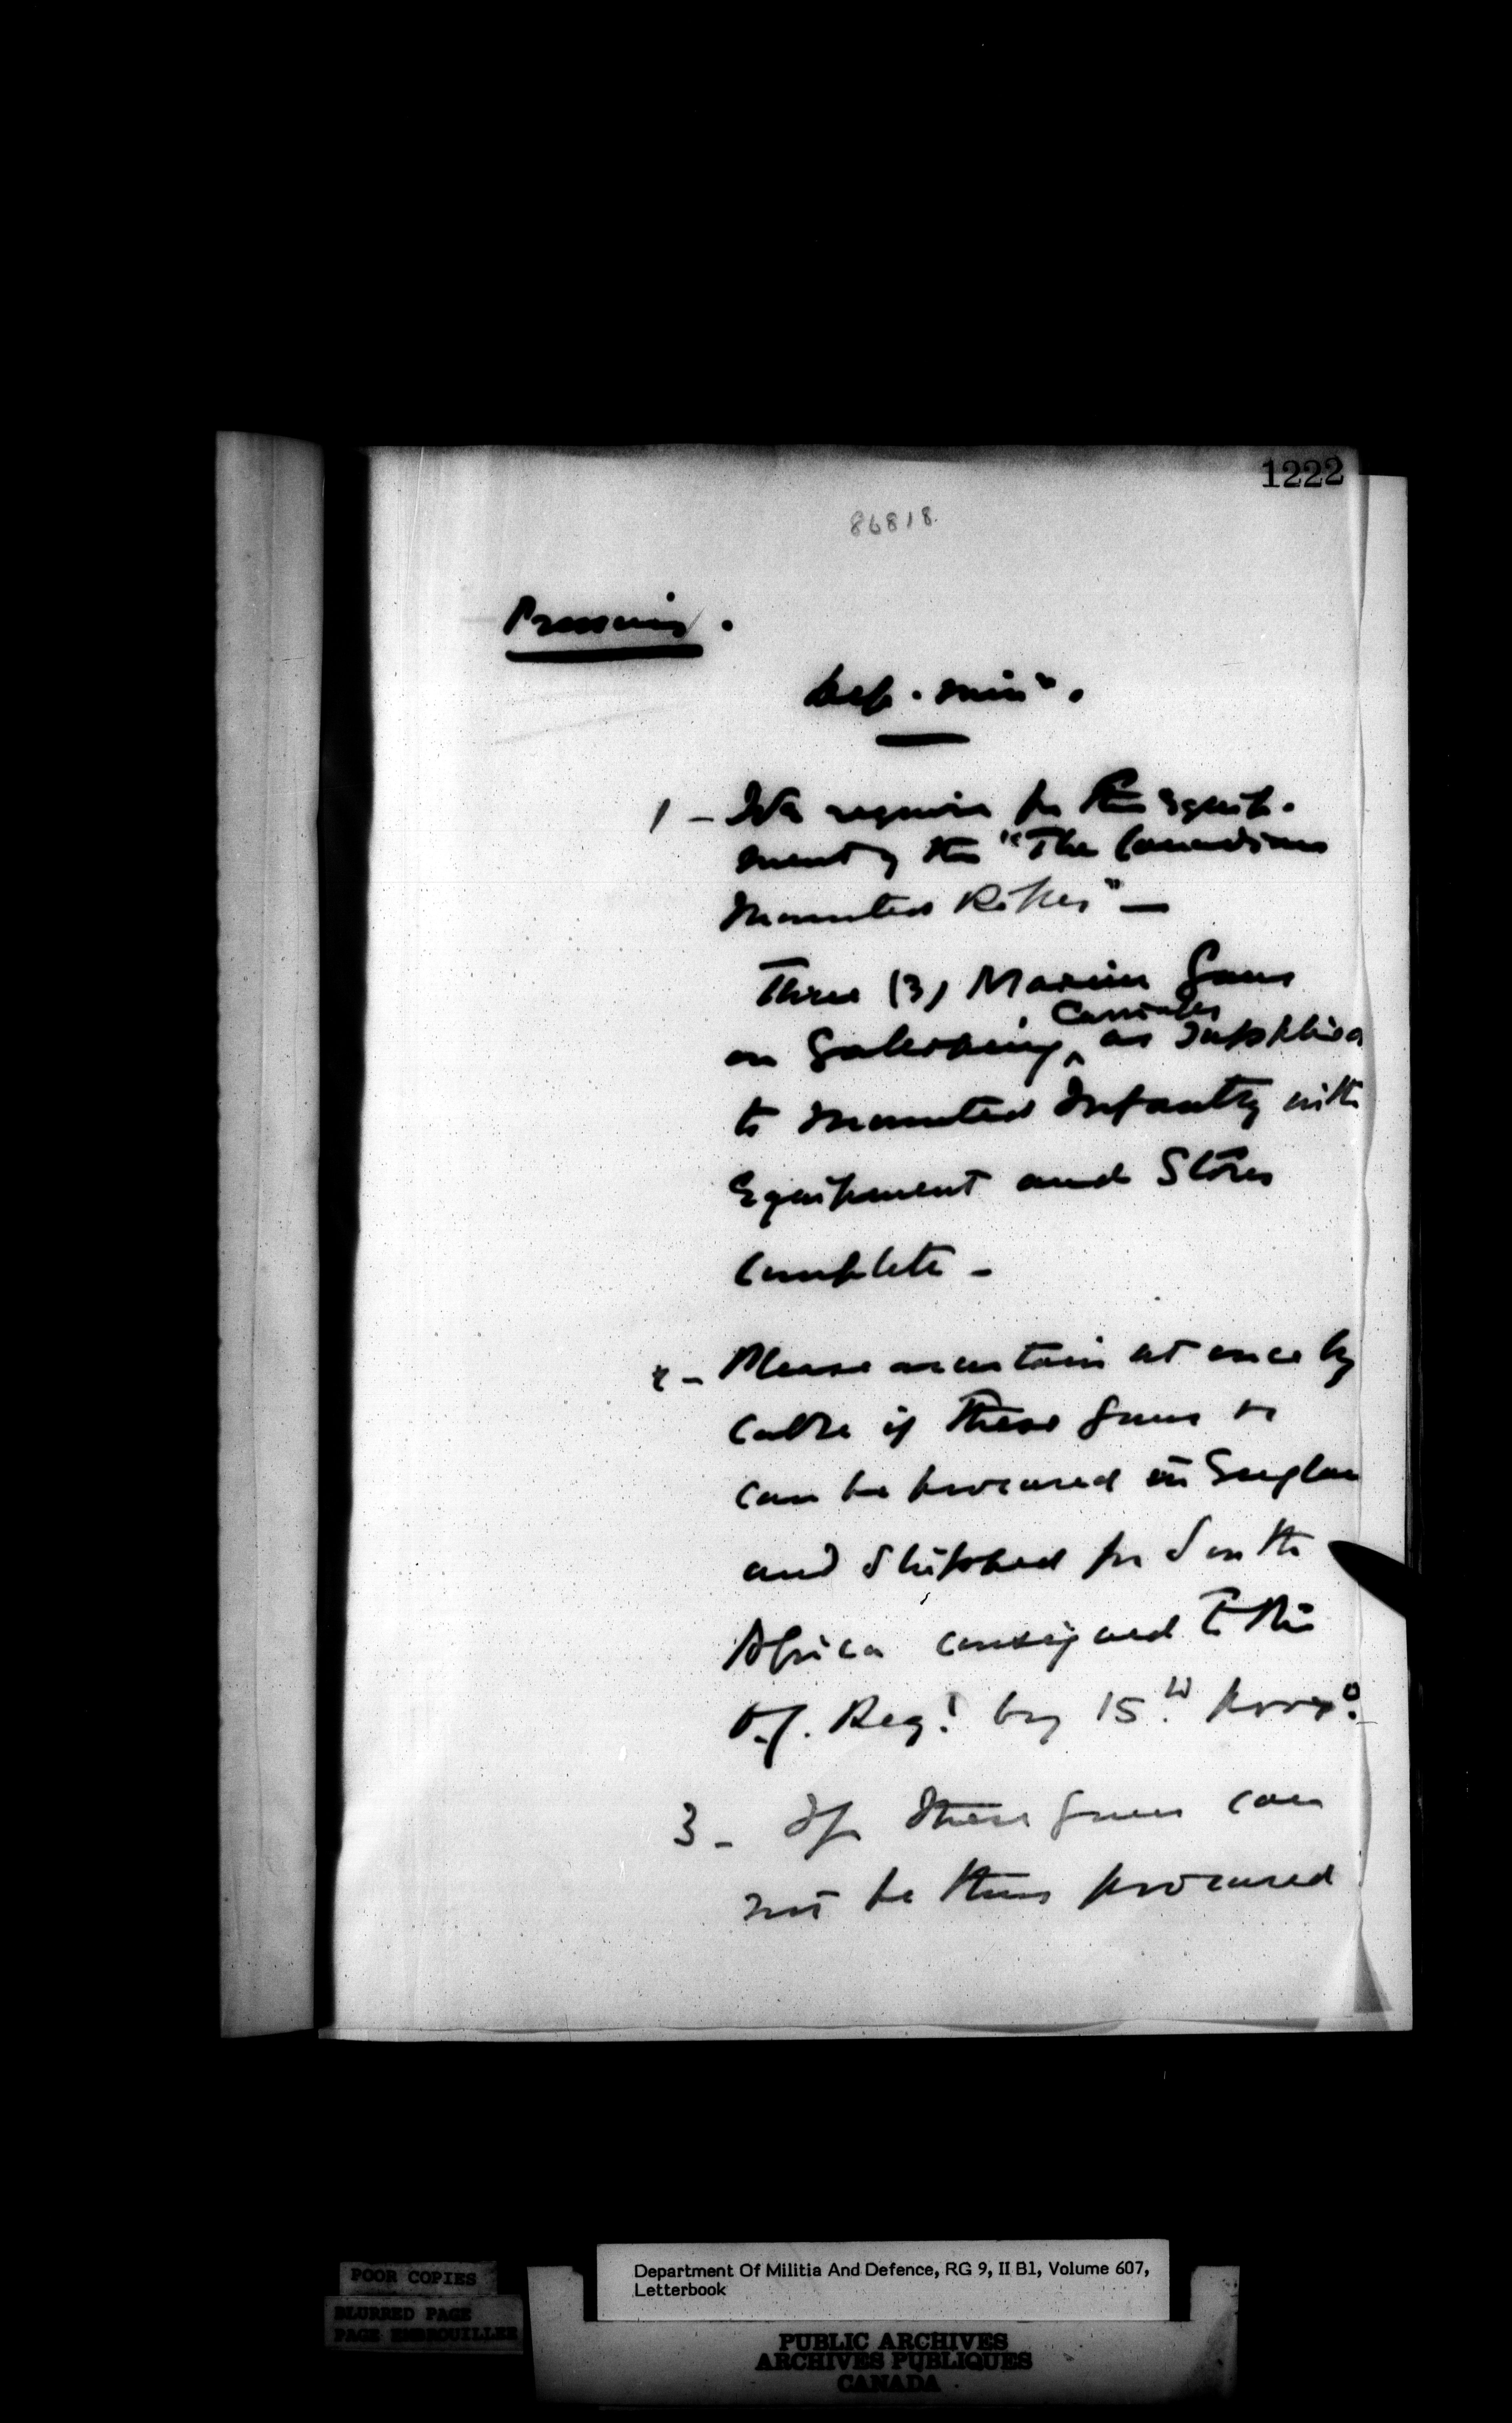 1222
86818.
Pressing.
Dep. Min^r.
1 - We require for the Equip-
ment of the "The Canadian
Mounted Rifles" —
Three (3) Maxim Guns
on Galloping ^ Carriages as supplied
to Mounted Infantry with
Equipment and Stores
Complete -
2 - Please ascertain at once by
Cable if these Guns &c
can be procured in Englan
and Shipped for South
Africa consigned to the
Reg^t by 15^th prox^o.
3 - If these Guns can
not be thus procured
POOR COPIES
BLURRED PAGE
PAGE EMBROUILLER
Department Of Militia And Defence, RG 9, II B1, Volume 607,
Letterbook
PUBLIC ARCHIVES
ARCHIVES PUBLIQUES
CANADA